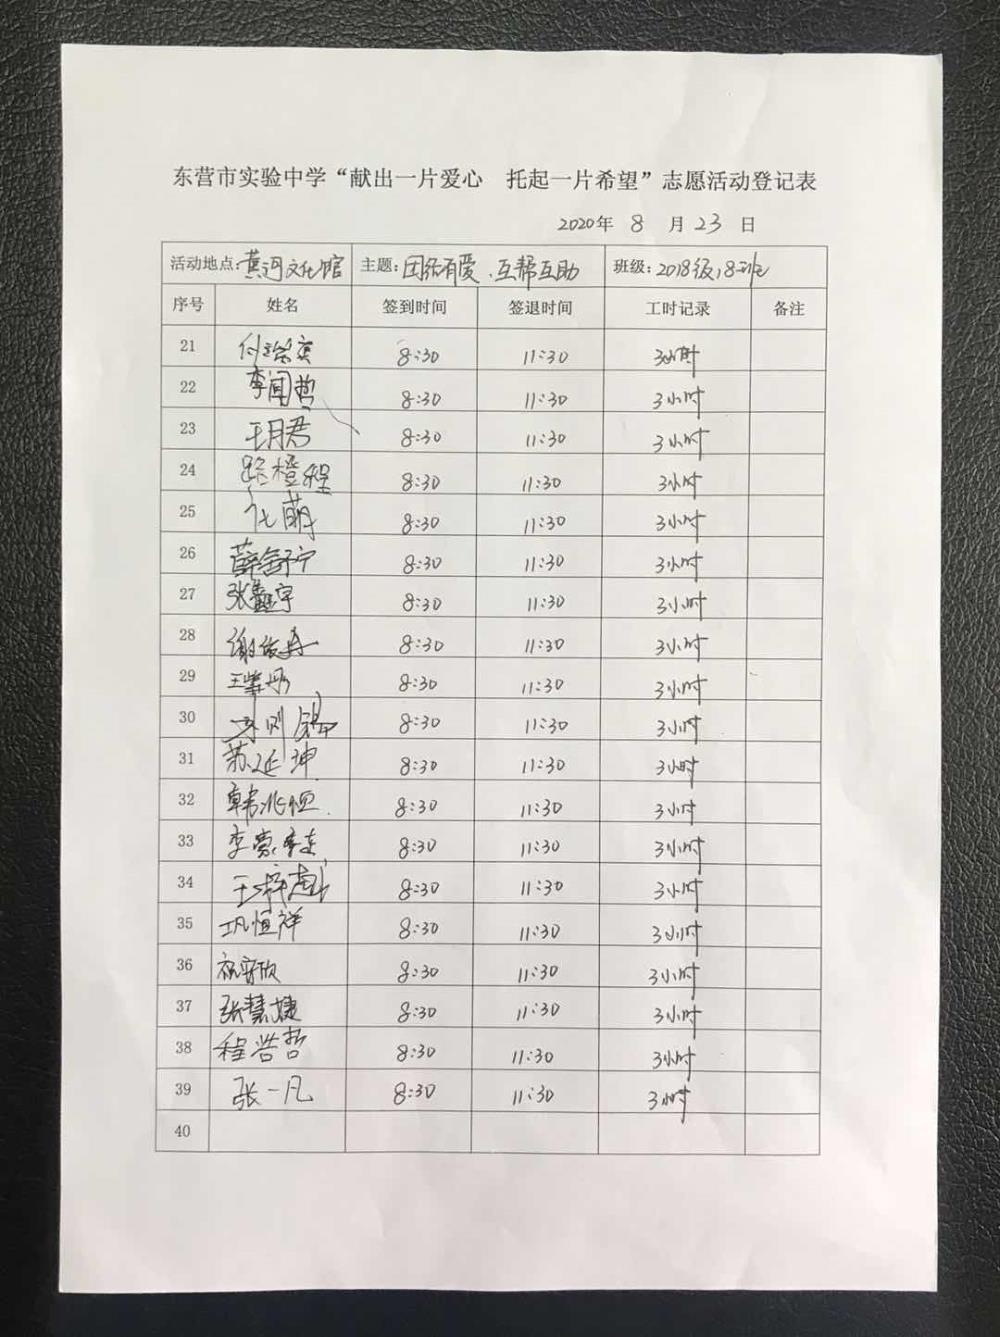 东营市实验中学“献出一片爱心 托起一片希望”志愿活动登记表
2020年 8 月 23 日
活动地点:黄河文化馆 主题:团结有爱、互帮互助 班级:2018级18班
序号 姓名 签到时间 签退时间 工时记录 备注
21 8:30 11:30 3小时
22 李闻哲 8:30 11:30 3小时
23 王月君 8:30 11:30 3小时
24 路橙程 8:30 11:30 3小时
25 化萌 8:30 11:30 3小时
26 薛舒宁 8:30 11:30 3小时
27 张鑫宇 8:30 11:30 3小时
28 8:30 11:30 3小时
29 8:30 11:30 3小时
30 8:30 11:30 3小时
31 苏延坤 8:30 11:30 3小时
32 韩兆恒 8:30 11:30 3小时
33 8:30 11:30 3小时
34 8:30 11:30 3小时
35 巩恒祥 8:30 11:30 3小时
36 8:30 11:30 3小时
37 张慧婕 8:30 11:30 3小时
38 程浩哲 8:30 11:30 3小时
39 张一凡 8:30 11:30 3小时
40